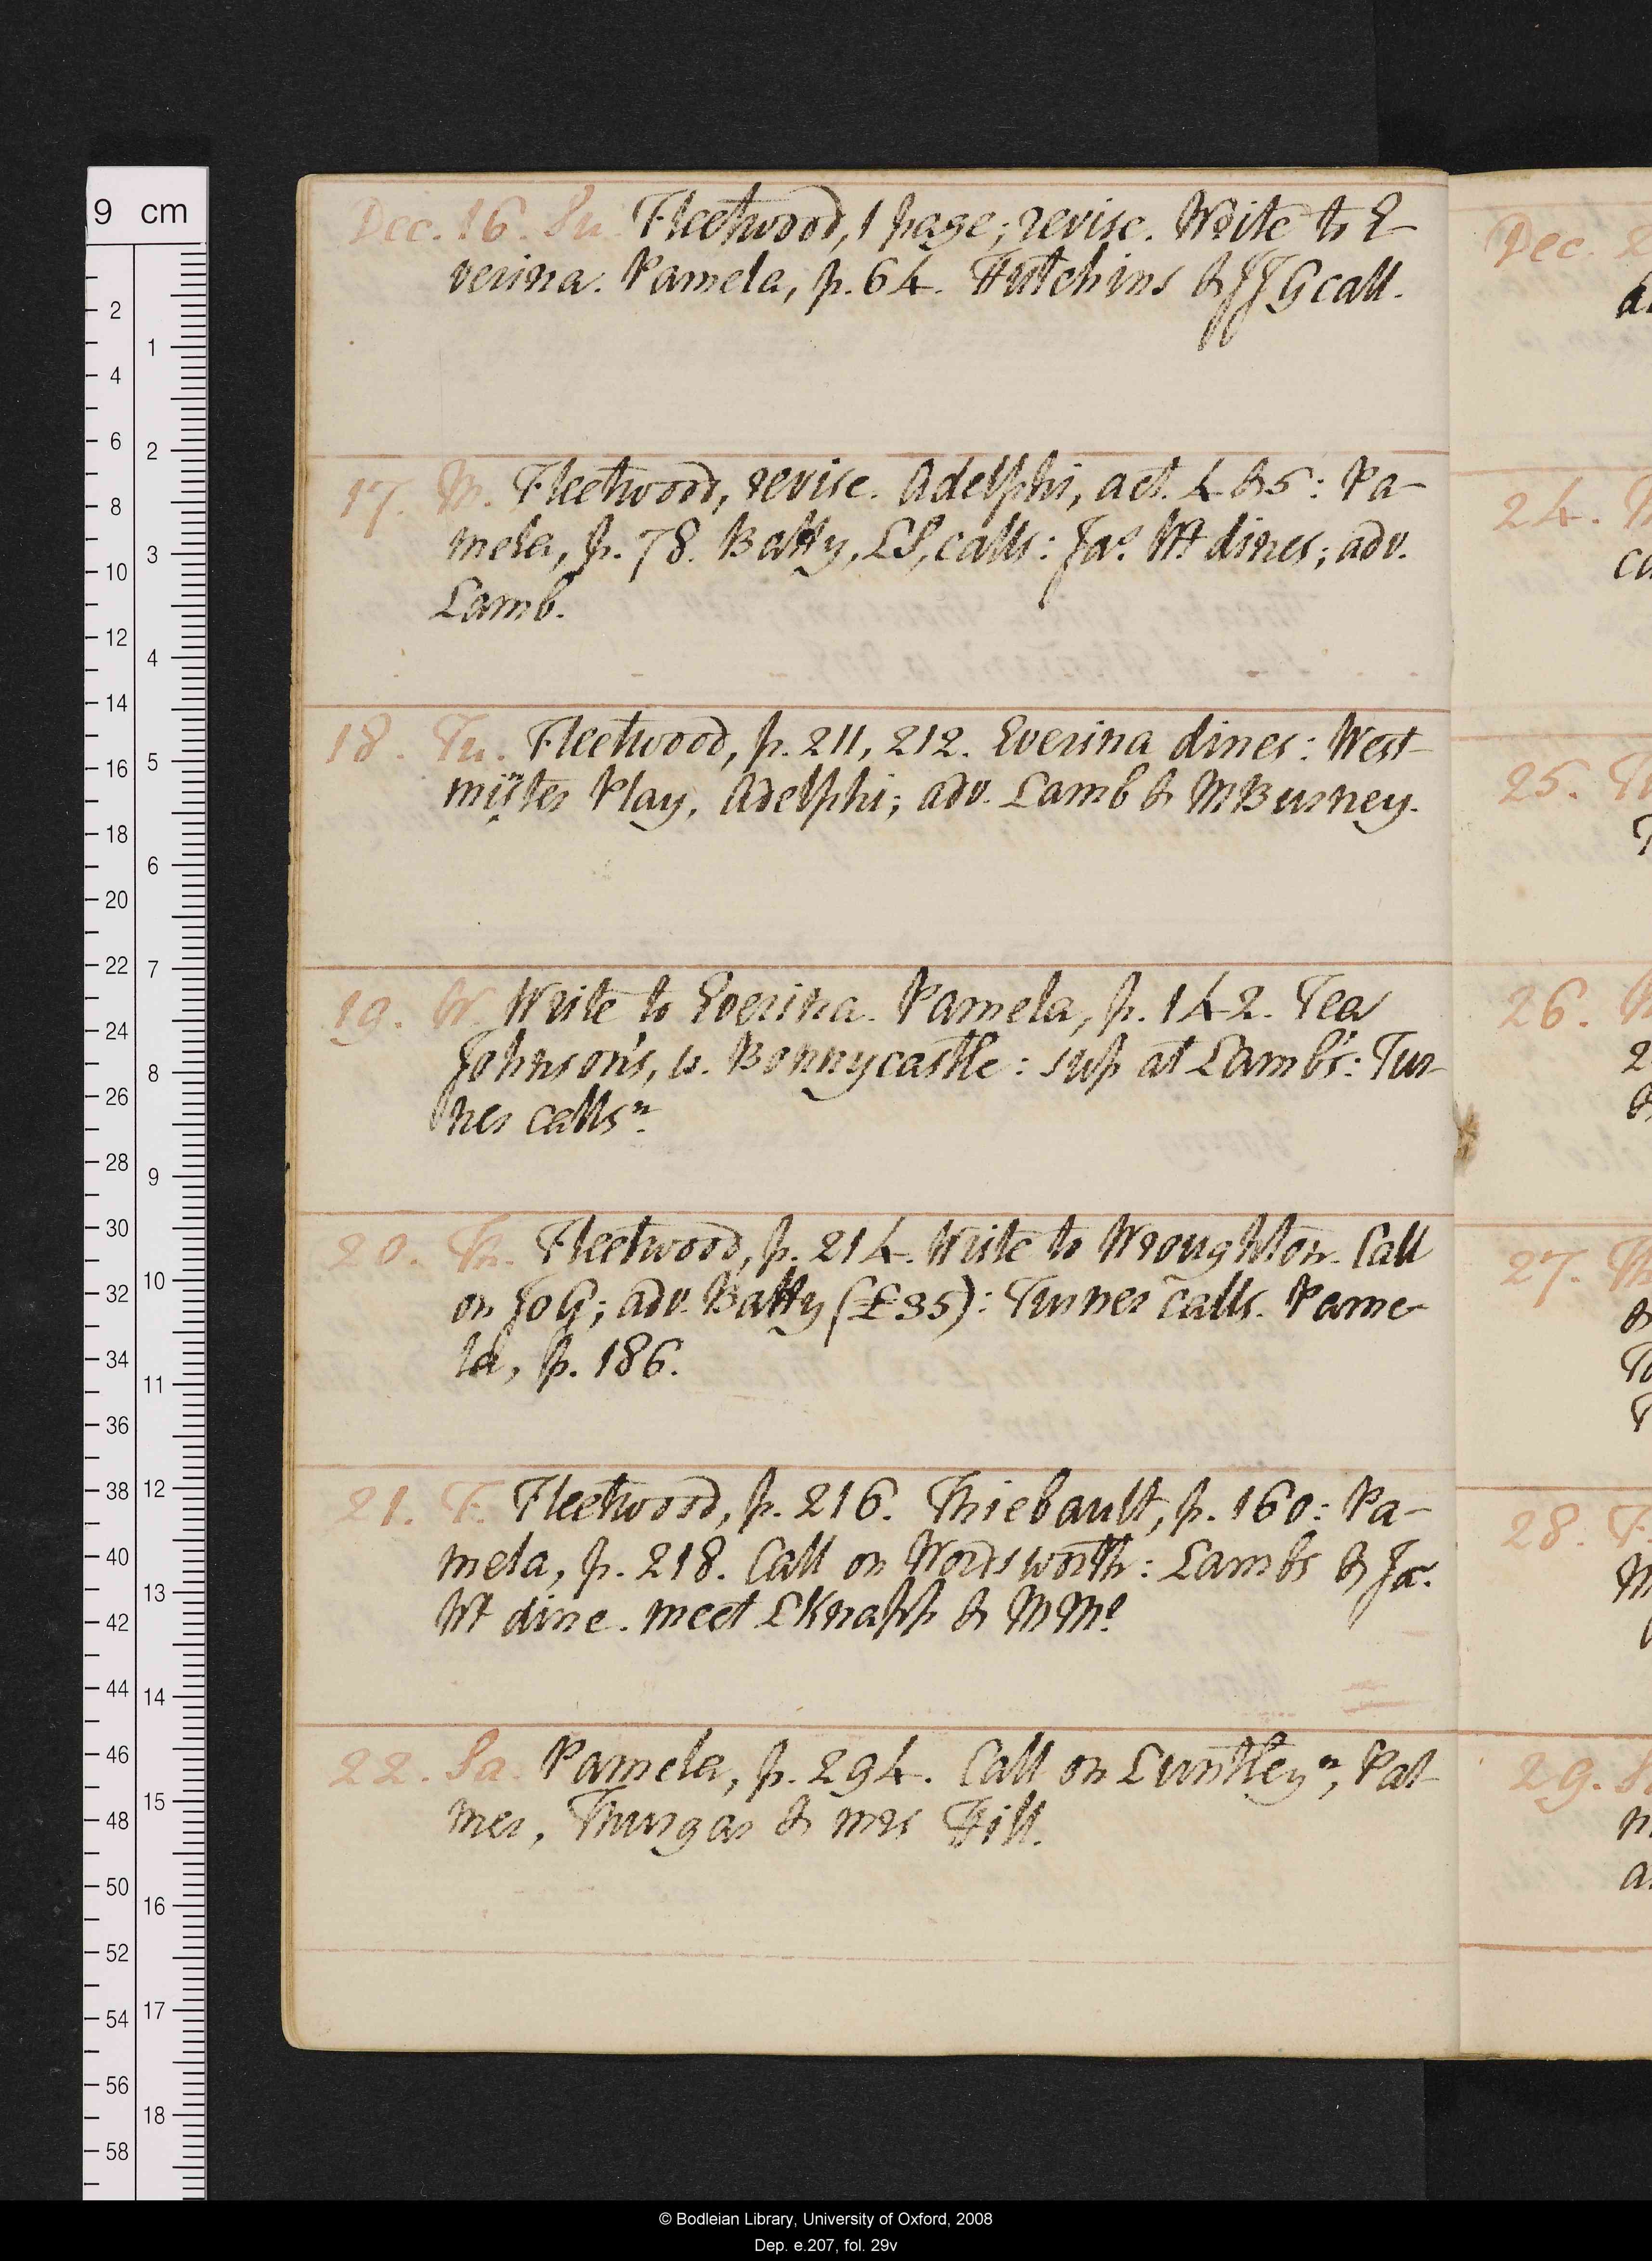 Dec. 16. Su. Fleetwood, 1 page; revise. Write to E-
verina. Pamela, p. 64. Hutchins & JJG call.
17. M. Fleetwood, revise. Adelphi, act. 4 & 5: Pa-
mela, p. 78. Batty, LS, calls: Jas. Wt dines; adv.
Lamb.
18. Tu. Fleetwood, p. 211, 212. Everina dines: West-
mister Play, Adelphi; adv. Lamb & MBurney.
19. W. Write to Everina. Pamela, p. 142. Tea
Johnson's, w. Bonnycastle: sup at Lamb's: Tur-
ner calls n.
20. Th. Fleetwood, p. 214. Write to Wroughton. Call
on JoG; adv. Batty (£35): Turner calls. Pame-
la, p. 186.
21. F. Fleetwood, p. 216. Thiebault, p. 160: Pa-
mela, p. 218. Call on Wordsworth: Lambs & Ja.
Wt dine. meet LKnapp & M
22. Sa. Pamela, p. 294. Call on Luntley n, Pal-
mer, Thurgar & mrs Hill.
Dec. 2
24.
ca
25. Tu
T
26.
2
&
27. Th
&
To
T
28. F.
M
29. S
m
a
9 cm
2
4
6
8
10
12
14
16
18
20
22
24
26
28
30
32
34
36
38
40
42
44
46
48
50
52
54
56
58
1
2
3
4
5
6
7
8
9
10
11
12
13
14
15
16
17
18
© Bodleian Library, University of Oxford, 2008
Dep. e.207, fol. 29v